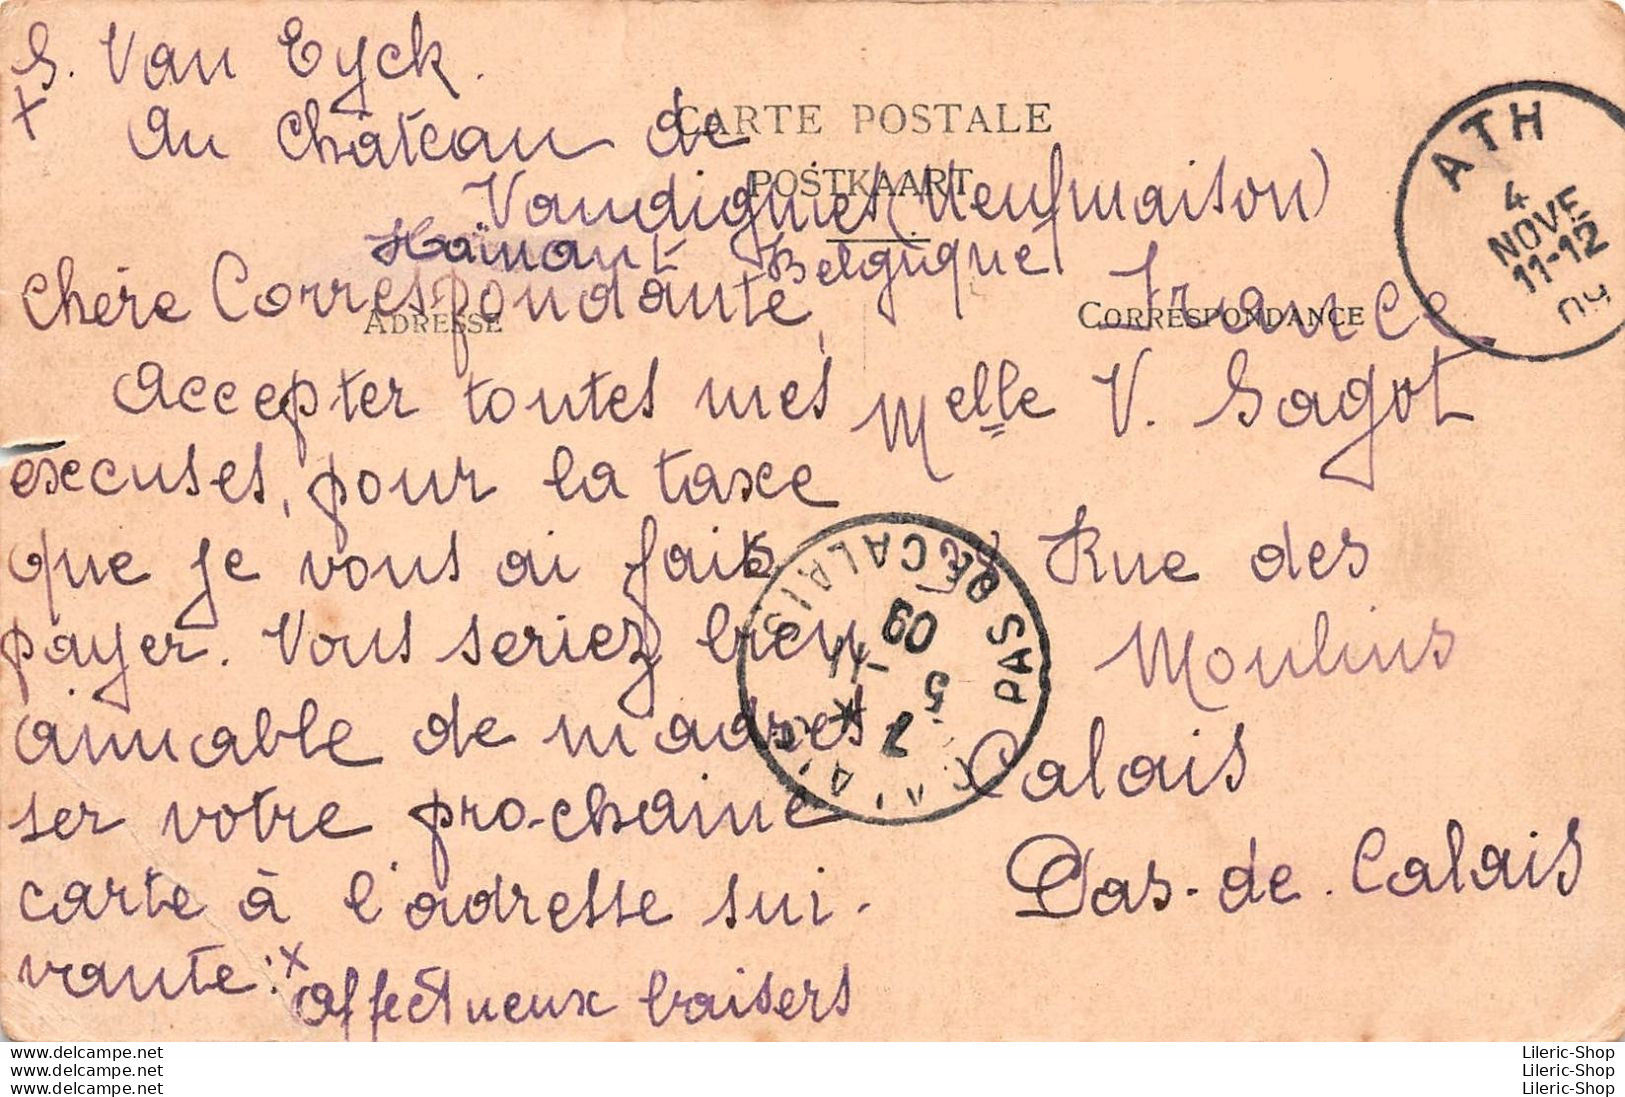 S. Van Eyck.
x au château de
CARTE POSTALE
POSTKAART
Vaudignies (Neufmaison)
Haïnaut Belgique
ADRESSE
CORRESPONDANCE
Chère Correspondante,
accepter toutes mes
excuses, pour la taxe
que je vous ai fait
payer. Vous seriez bien
aimable de m'adres
ser votre pro-chaine
carte à l'adresse sui-
vante: x
affectueux baisers
France
Melle V. Sagot
Rue des
Moulins
Calais
Pas-de-Calais
ATH
4
NOVE
11-12
09
PAS DE CALAIS
5
09
delcampe.net
delcampe.net
delcampe.net
Lileric-Shop
Lileric-Shop
Lileric-Shop